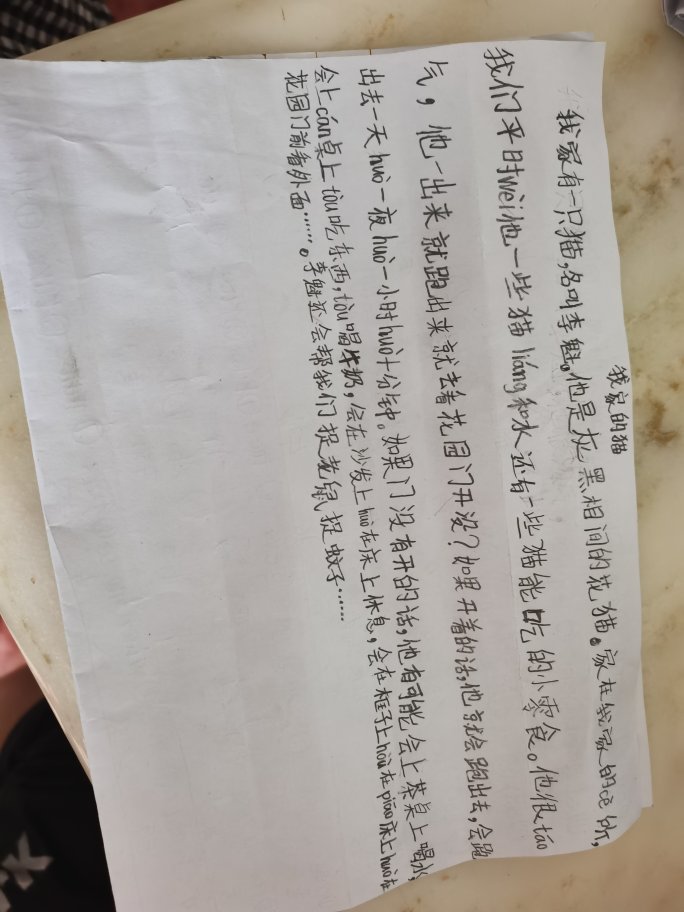 我家的猫
我家有一只猫，名叫李魁。他是灰黑相间的花猫。家在我家的厕所，
我们平时wèi他一些猫liáng和水还有一些猫能吃的小零食。他很táo
气，他一出来就跑出来就去看花园门开没？如果开着的话，他就会跑出去，会跑
出去一天huò一夜huò一小时huò十分钟。如果门没有开的话，他有可能会上茶桌上喝水，
会上cán桌上tōu吃东西，tōu喝牛奶，会在沙发上huò在床上休息，会在柜子上huò在piāo床上huò在
花园门前看外面……。李魁还会帮我们捉老鼠捉蚊子……